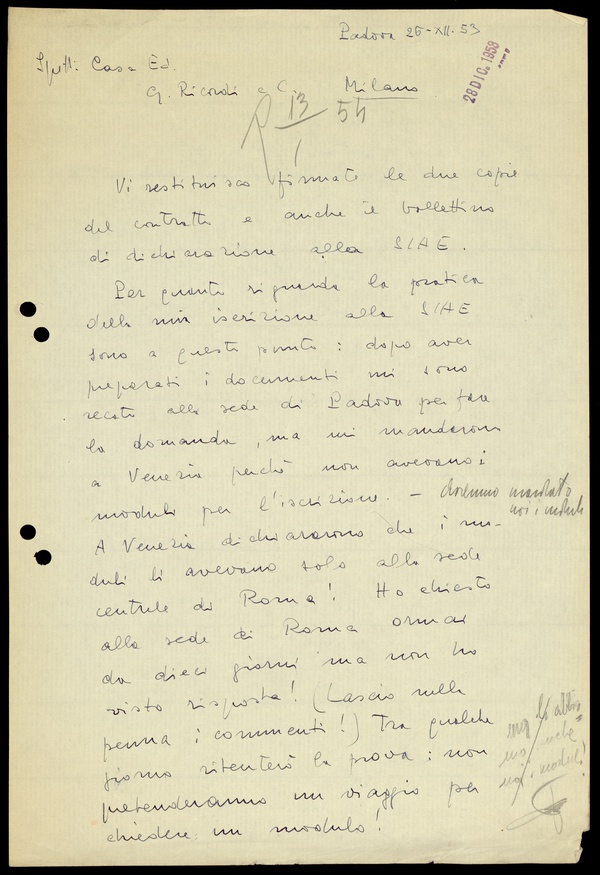 Padova 26-XII.53
28 DIC. 1953
Spett. Casa Ed.
G. Ricordi e C. Milano
R 13/1 54
Vi restituisco firmate le due copie
del contratto e anche il bollettino
di dichiarazione alla SIAE.
Per quanto riguarda la pratica
della mia iscrizione alla SIAE
sono a questo punto: dopo aver
preparati i documenti mi sono
recato alla sede di Padova per fare
la domanda, ma mi mandarono
a Venezia perchè non avevano i
moduli per l'iscrizione. —
Avevamo mandato
noi i moduli
A Venezia dichiararono che i mo-
duli li avevano solo alla sede
centrale di Roma! Ho chiesto
alla sede di Roma ormai
da dieci giorni ma non ho
visto risposta! (Lascio nella
penna i commenti!) Tra qualche
giorno ritenterò la prova: non
pretenderanno un viaggio per
chiedere un modulo!
ma li abbia=
mo anche
noi i moduli!